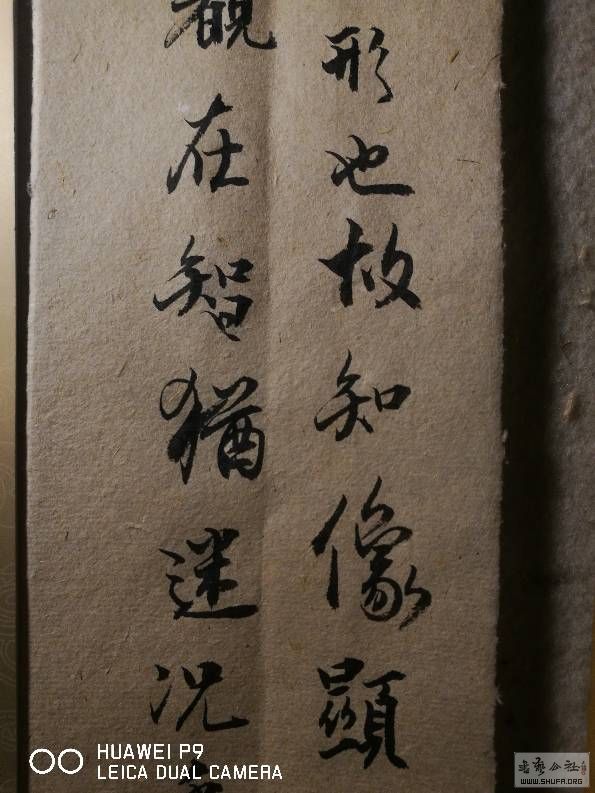 形也故知像顯
觀在智猶迷況
HUAWEI P9
LEICA DUAL CAMERA
WWW.SHUFA.ORG